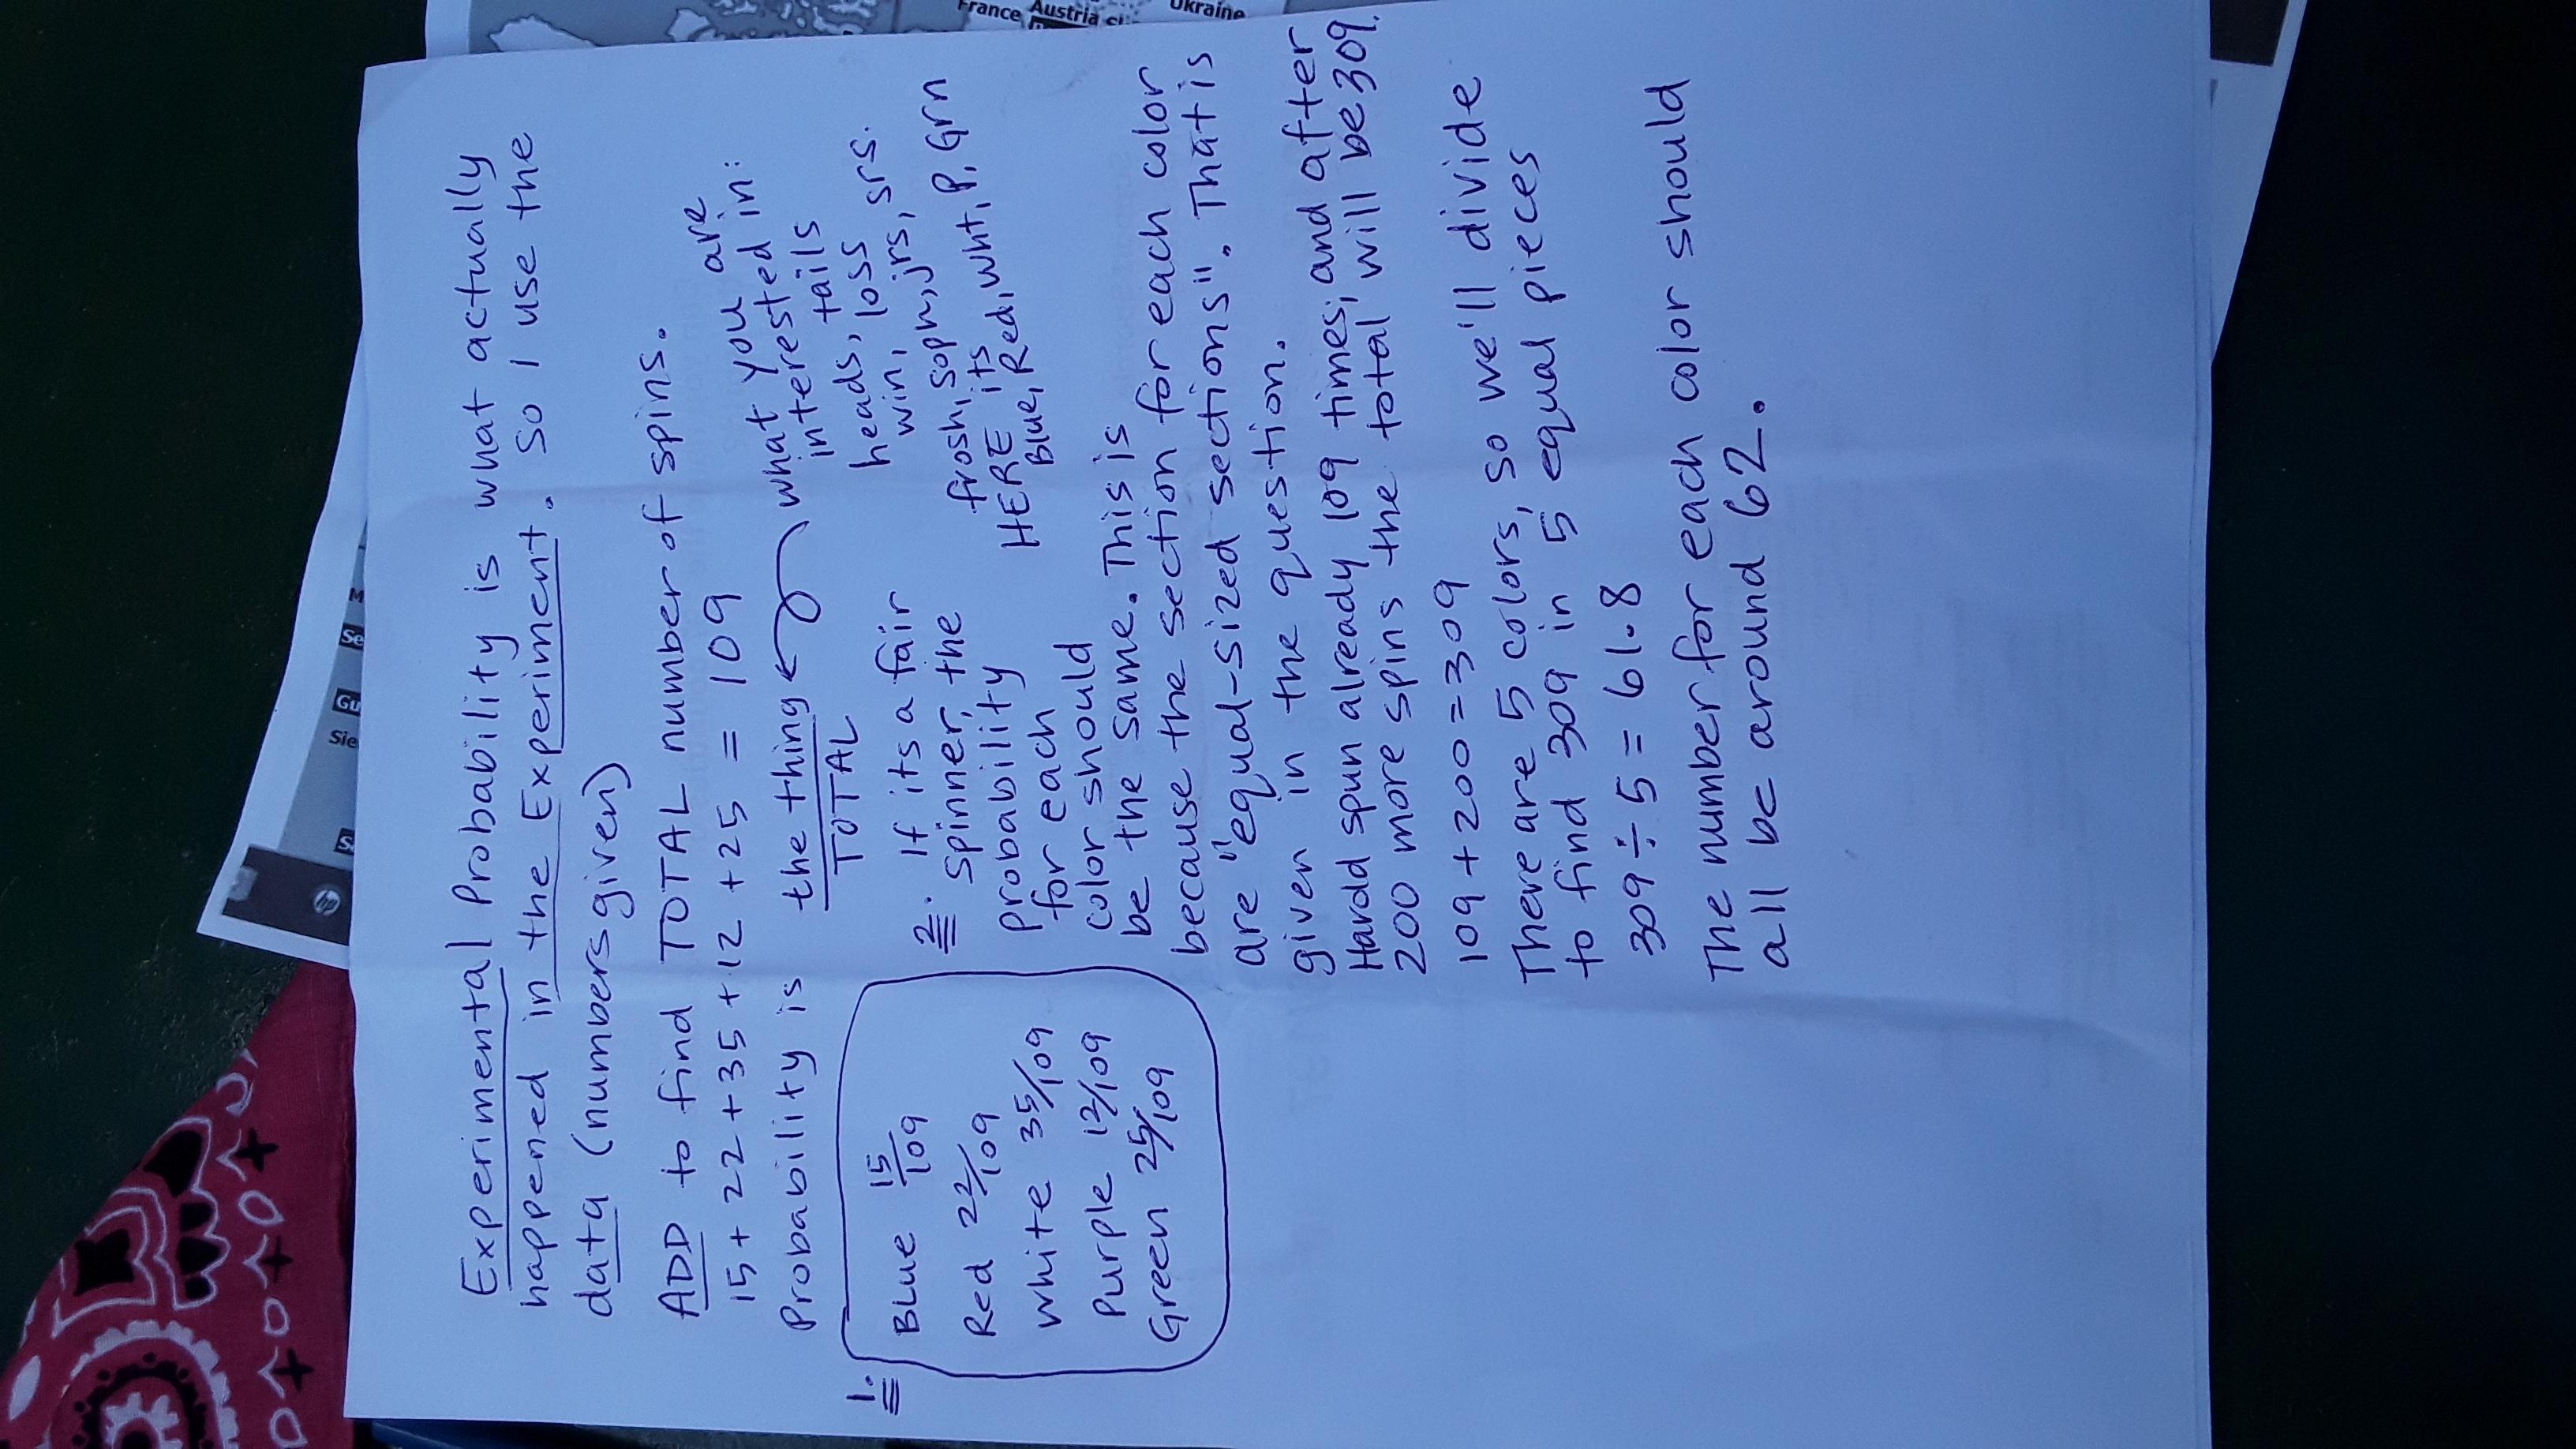 Experimental Probability is what actually
happened in the Experiment. So I use the
data (numbers given)
ADD to find TOTAL number of spins.
15 + 22 + 35 + 12 + 25 = 109
Probability is the thing
TOTAL
what you are
interested in:
heads, tails
win, loss
frosh, soph, jrs, srs.
HERE its
Blue, Red, Wht, P, Grn
1.
Blue 15/109
Red 22/109
White 35/109
Purple 12/109
Green 25/109
2. If its a fair
spinner, the
probability
for each
color should
be the same. This is
because the section for each color
are "equal-sized sections". That is
given in the question.
Harold spun already 109 times, and after
200 more spins the total will be 309.
109 + 200 = 309
There are 5 colors, so we'll divide
to find 309 in 5 equal pieces
309 ÷ 5 = 61.8
The number for each color should
all be around 62.
France Austria
Ukraine
M
Se
Gu
Sie
S
hp